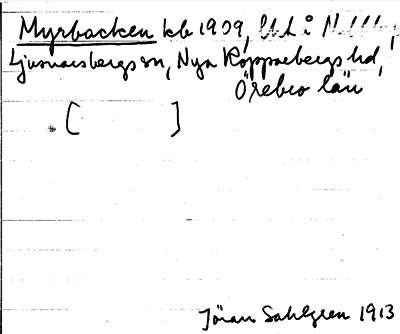 Myrbacken kb 1909,
Ljusnarsbergs sn, Nya Kopparbergs hd,
Örebro län
[ ]
Jöran Sahlgren 1913